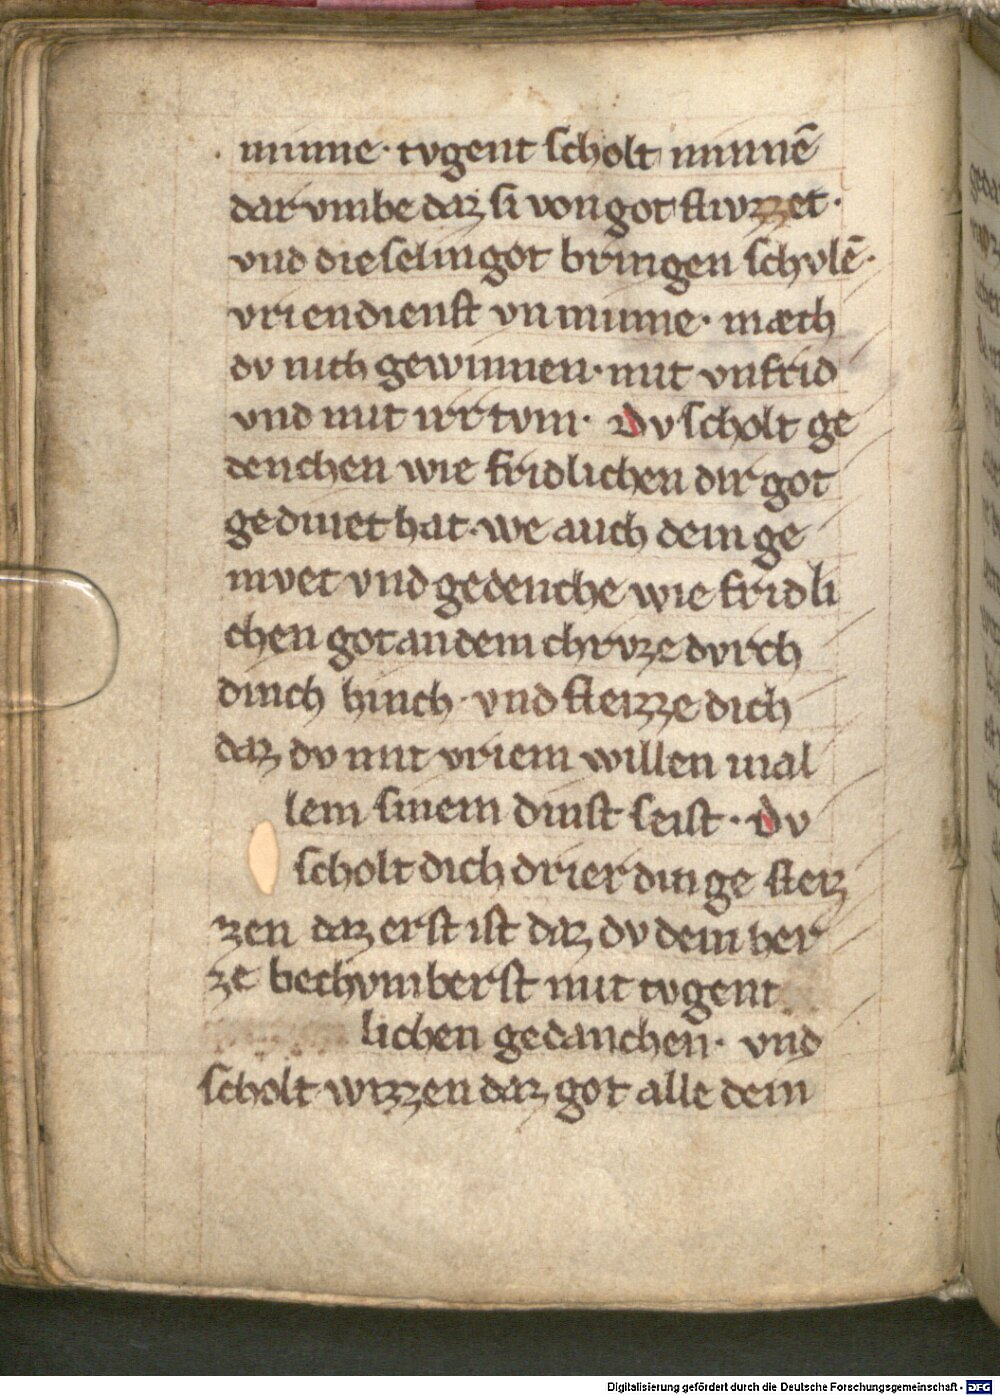 minne· tvgent scholt minnē
dar vmbe daz si von got flivzzet·
vnd die sel in got bringen schvlē·
vrien dienst vn minne· mæch
dv nith gewinnen· mit vnfrid
vnd mit irrtvm· Dv scholt ge
denchen wie fridlichen dir got
gedinet hat· we auch dein ge
mvet vnd gedenche wie fridli
chen got an dem chrvze dvrch
dinch hinch· vnd fleizze dich
daz dv mit vriem willen in al
lem sinem dinst seist· Dv
scholt dich drier dinge fleiz
zen daz erst ist daz dv dein her
ze bechvmberst mit tvgent
lichen gedanchen· vnd
scholt wizzen daz got alle dein
Digitalisierung gefördert durch die Deutsche Forschungsgemeinschaft - DFG